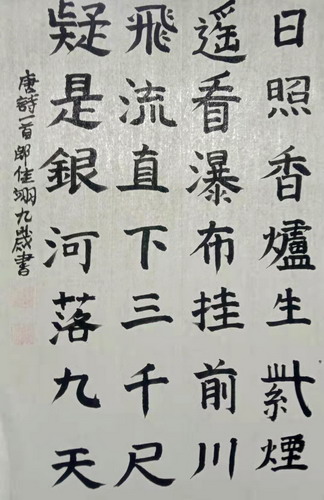 日照香爐生紫煙
遥看瀑布挂前川
飛流直下三千尺
疑是銀河落九天
唐詩一首邱佳翊九歲書